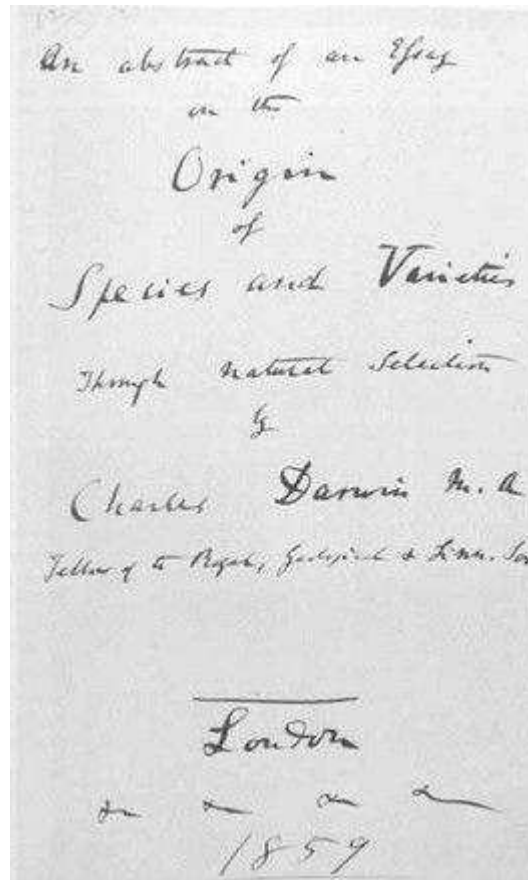 An abstract of an Essay
on the
Origin
of
Species and Varieties
Through natural selection
by
Charles Darwin M. A
Fellow of the Royal, Geological & Linn. Soc
London
&c &c &c &c
1859